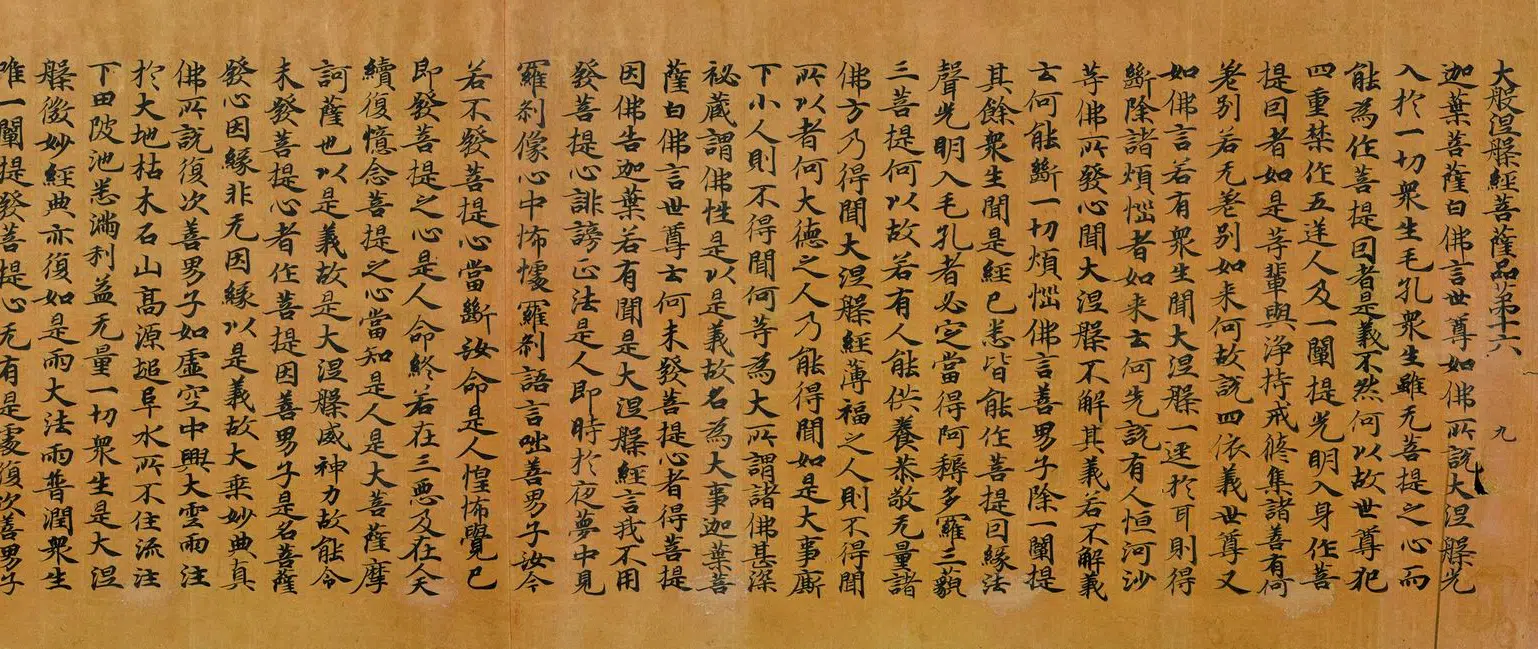 大般涅槃經菩薩品第十六　九
迦葉菩薩白佛言世尊如佛所說大涅槃光
入於一切衆生毛孔衆生雖无菩提之心而
能為作菩提因者是義不然何以故世尊犯
四重禁作五逆人及一闡提光明入身作菩
提因者如是等輩與淨持戒脩集諸善有何
差別若无差別如来何故說四依義世尊又
如佛言若有衆生聞大涅槃一逕於耳則得
斷除諸煩惱者如来云何先說有人恒河沙
等佛所發心聞大涅槃不解其義若不解義
云何能斷一切煩惱佛言善男子除一闡提
其餘衆生聞是經已悉皆能作菩提因緣法
聲光明入毛孔者必定當得阿耨多羅三藐
三菩提何以故若有人能供養恭敬无量諸
佛方乃得聞大涅槃經薄福之人則不得聞
所以者何大德之人乃能得聞如是大事廝
下小人則不得聞何等為大所謂諸佛甚深
祕藏謂佛性是以是義故名為大事迦葉菩
薩白佛言世尊云何未發菩提心者得菩提
因佛告迦葉若有聞是大涅槃經言我不用
發菩提心誹謗正法是人即時於夜夢中見
羅刹像心中怖懅羅刹語言咄善男子汝今
若不發菩提心當斷汝命是人惶怖覺已
即發菩提之心是人命終若在三惡及在人天
續復憶念菩提之心當知是人是大菩薩摩
訶薩也以是義故是大涅槃威神力故能令
未發菩提心者作菩提因善男子是名菩薩
發心因緣非无因緣以是義故大乗妙典真
佛所說復次善男子如虛空中興大雲雨注
於大地枯木石山高源塠阜水所不住流注
下田陂池悉満利益无量一切衆生是大涅
槃微妙經典亦復如是雨大法雨普潤衆生
唯一闡提發菩提心无有是處復次善男子